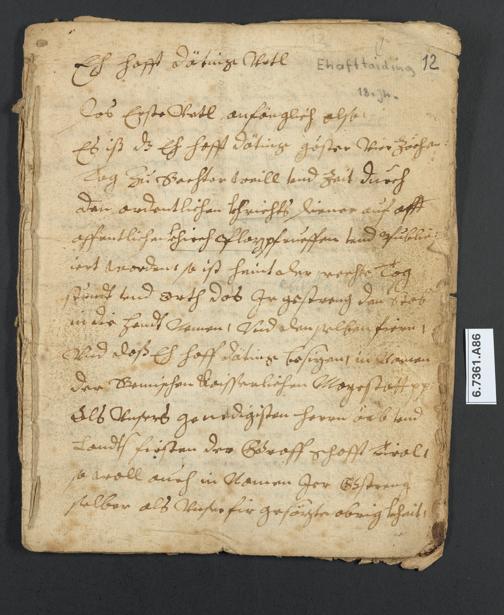 Eh hafft dätings Vrtl
Ehafttaiding 12
18. Jh.
Das Erste Vrtl anfänglich also:
Es ist dz Eh hafft dätings gester vier zöchen
Tag zu Rechter weill und Zeit durch
den ordentlichen gerichts diener auf
offentlichen Kirch
iert worden, so ist heint der rechte Tag
stundt und orth das Ir gestreng den Stab
in die Handt Nemen, Vnd den selben fiern,
Vnd daß Eh hafft dätings besizen, in Namen
der Remischen Kaisserlichen Magestatt pp
Als Vnsers genedigisten Herrn und
Landts firsten der Graffschafft Tirol,
so woll auch in Namen Irer Gestreng
selber als Vnser fir gesözte obrigkheit,
6.7361.A86